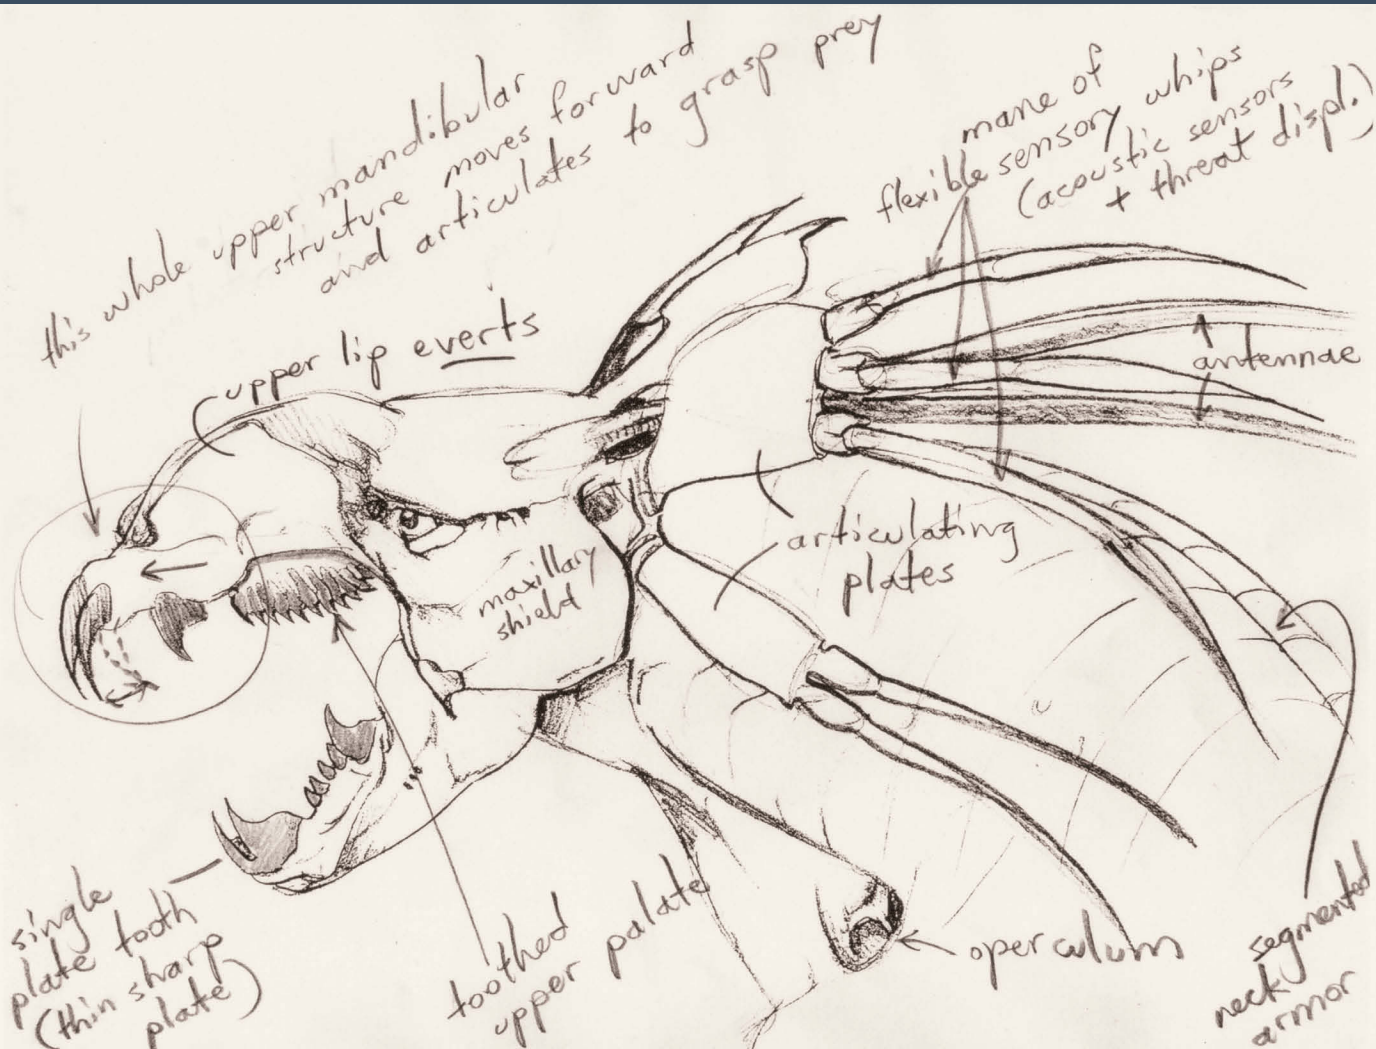 this whole upper mandibular
structure moves forward
and articulates to grasp prey
mane of
flexible sensory whips
(acoustic sensors
+ threat displ.)
upper lip everts
antennae
articulating
plates
maxillary
shield
single
plate tooth
(thin sharp
plate)
toothed
upper palate
operculum
segmented
neck
armor